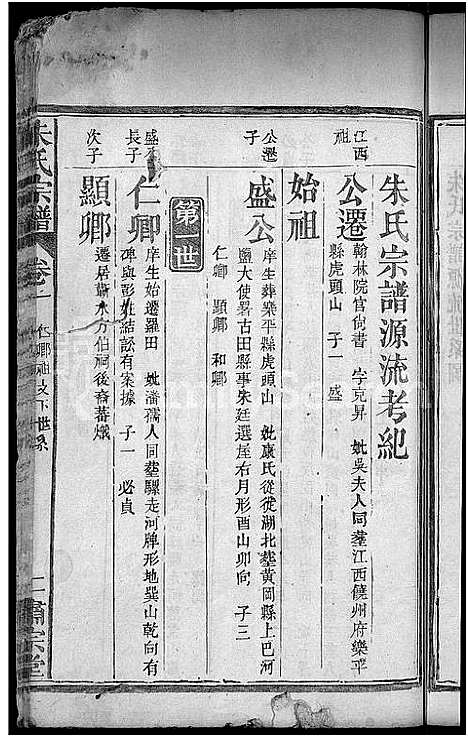 朱氏宗譜源流考紀
江西
祖
公遷
翰林院官尚書 字克昇 妣吳夫人同塟江西饒州府樂平
縣虎頭山 子一 盛
始祖
公遷
子
盛公
庠生葬樂平縣虎頭山 妣康氏從徙湖北塟黃岡縣上巴河
鹽大使署古田縣事朱廷選屋右月形酉山卯向 子三
仁卿 顯卿 和卿
第一世
盛公
長子
仁卿
庠生始遷羅田 妣潘孺人同塟騾走河牌形地巽山乾向有
碑與彭姓結訟有案據 子一 必貞
次子
顯卿
遷居蘄水方伯祠後裔蕃熾
朱氏宗譜
卷一
仁卿祖支下世系
一
肅宗堂